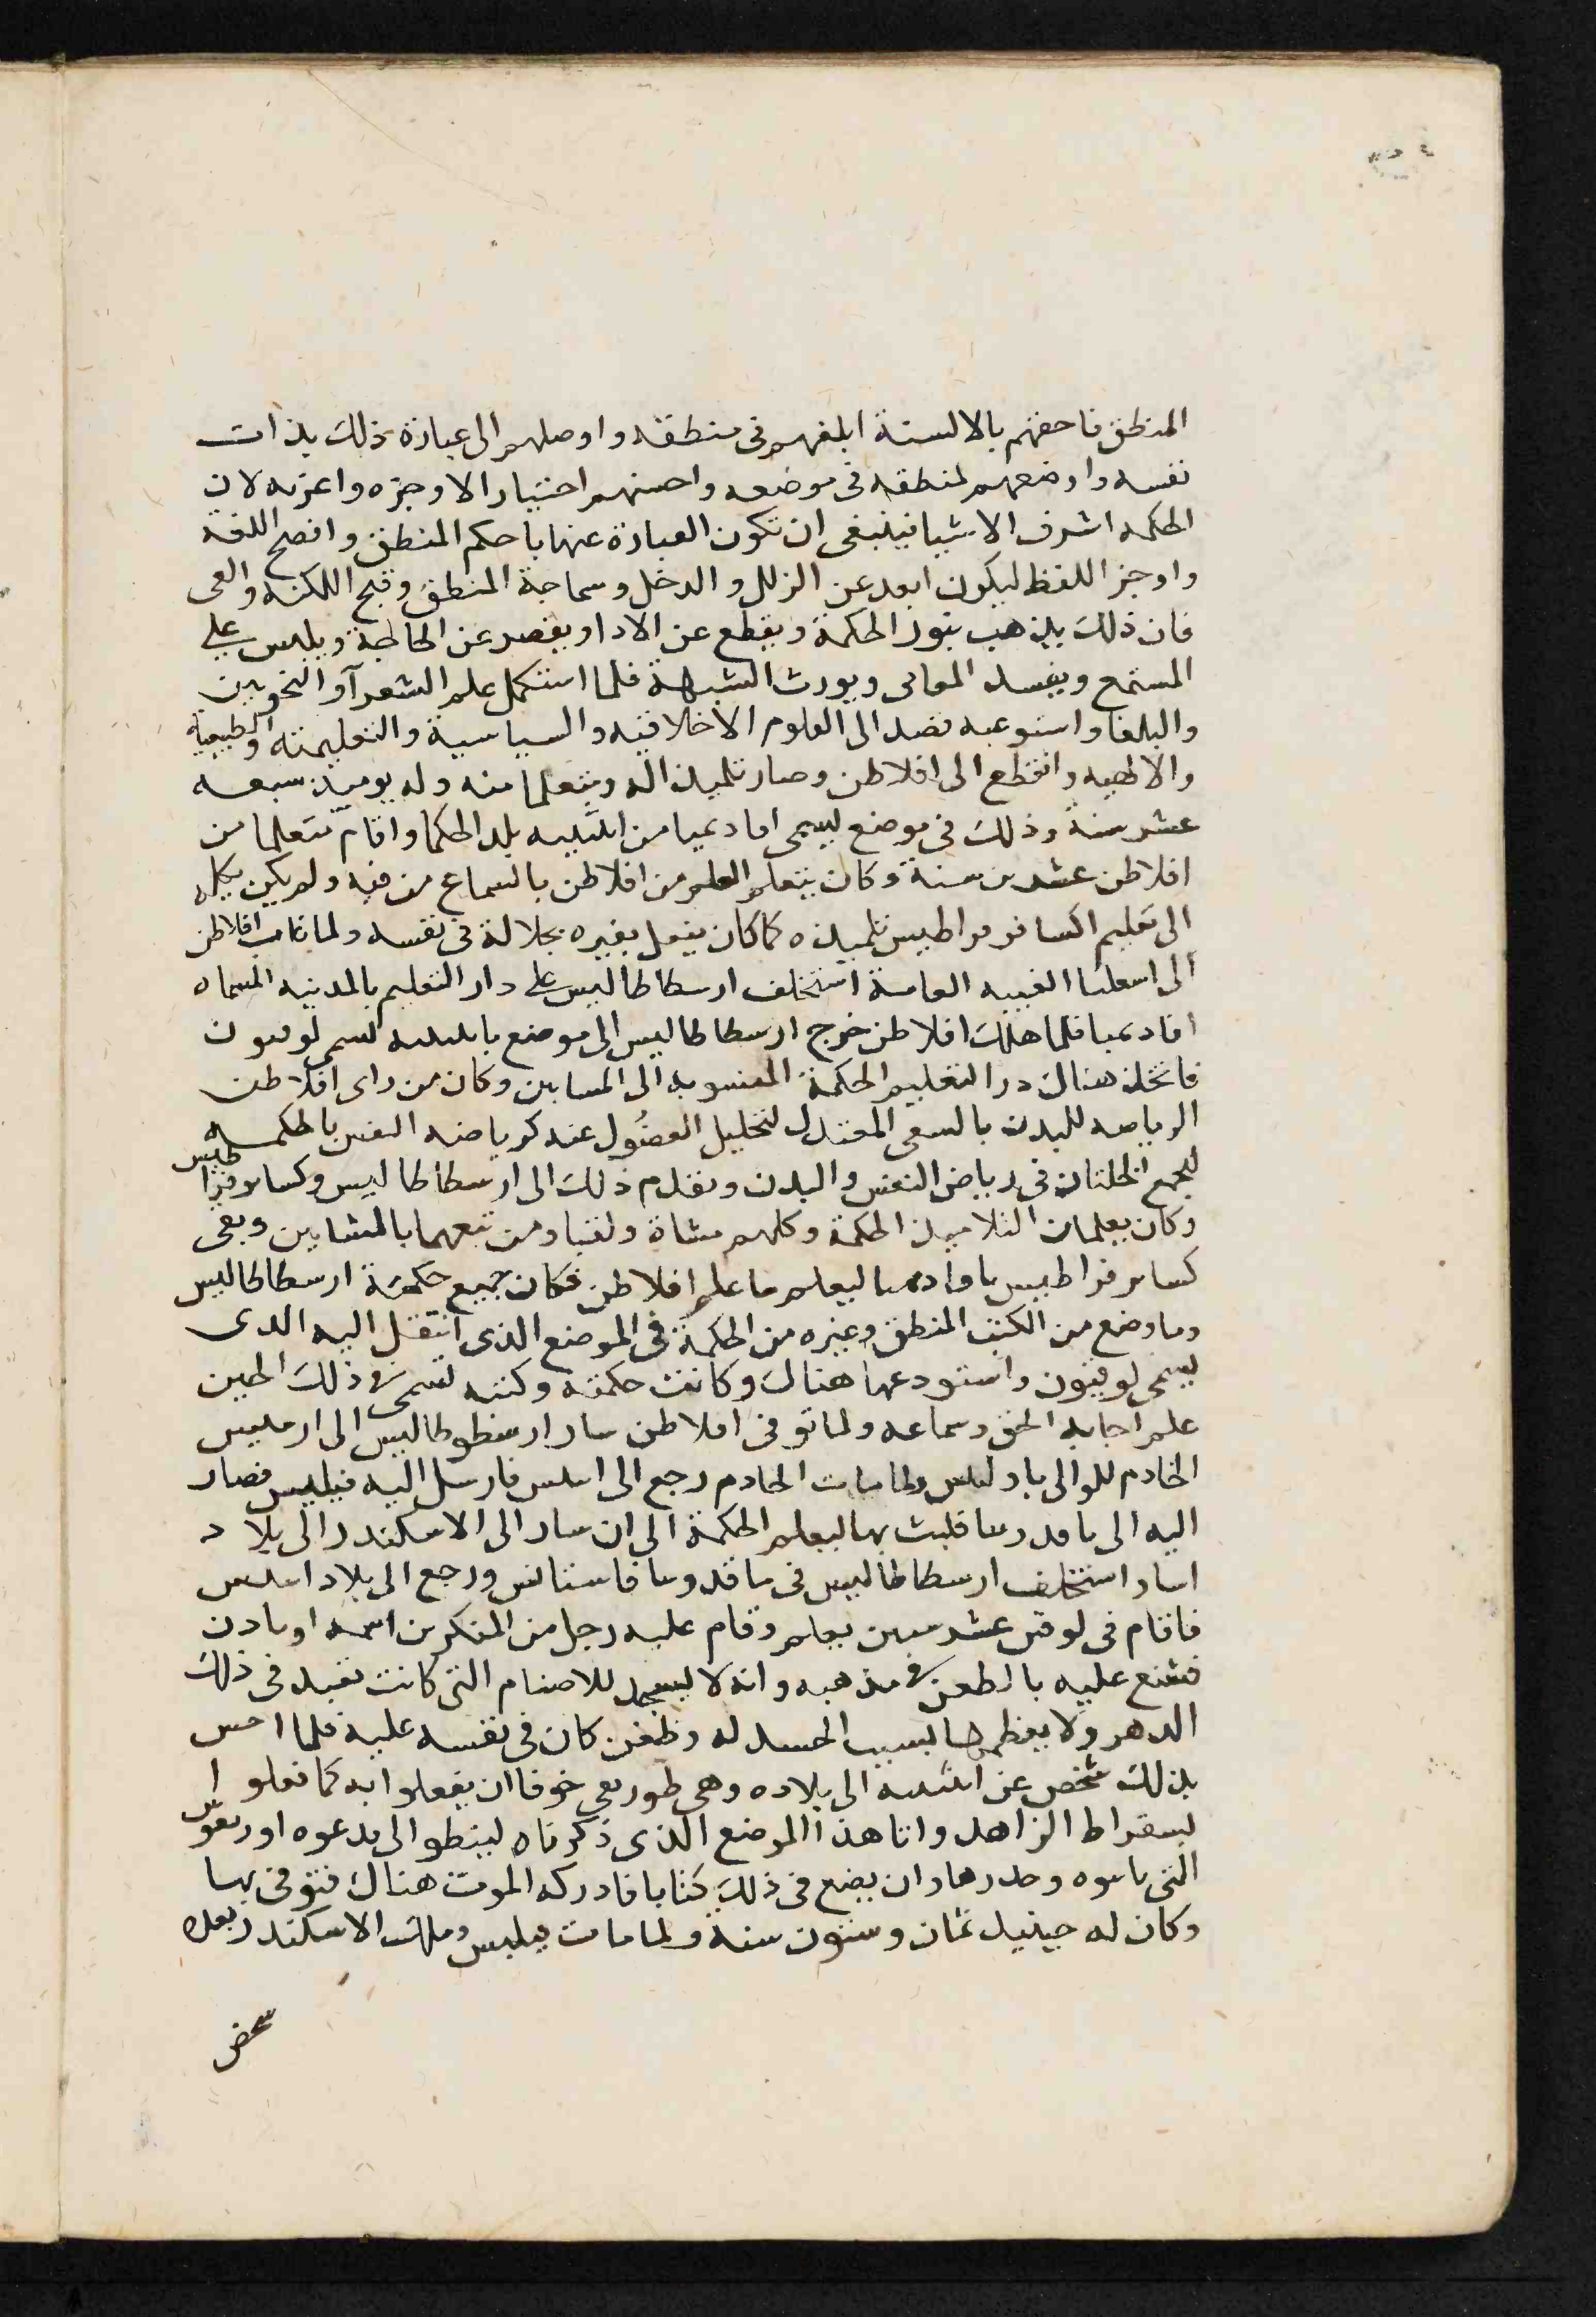 المنطق فاحقهم بالالسنة ابلغهم في منطقه واوصلهم الى عبارة ذلك بذات
نفسه واوضعهم لمنطقه في موضعه واحسنهم اختيارا لاوجزه واعذبه لان
الحكمه اشرف الاشيا فينبغي ان تكون العبارة عنها باحكم المنطق وافصح اللغه
واوجز اللفظ ليكون ابعد عن الزلل والدخل وسماجة المنطق وقبح اللكنه والعى
فان ذلك يذهب بنور الحكمة ويقطع عن الادا ويقصر عن الحاجة ويلبس على
المستمع ويفسد المعانى ويورث الشبهة فلما استكمل علم الشعرآ والنحويين
والبلغا واستوعبه قصد الى العلوم الاخلاقيه والسياسية والتعليميه والطبيعيه
والالهيه وانقطع الى افلاطن وصار تلميذا له ومتعلما منه وله يوميذ سبعه
عشر سنة وذلك في موضع ليسمى اقاديميا من اثينيه بلد الحكما واقام متعلما من
افلاطن عشرين سنة وكان يتعلم العلم من افلاطن بالسماع من فيه ولم يكن يكله
الى تعليم اكسانوقراطيس تلميذه كما كان يفعل بغيره بجلالة في نفسه ولما غاب افلاطن
الى اسعليا الغيبه العامية استخلف ارسطاطاليس على دار التعليم بالمدينه المسماه
اقاديميا فلما هلك افلاطن خرج ارسطاطاليس الى موضع باىىىه لسمى لوقيون
فاتخذ هناك در التعليم الحكمة المنسوبه الى المشاين وكان من راى افلاطن
الرياضه للبدن بالسعى المعتدل لتحليل الفضُول عنه كرياضه النفس بالحكمه
لتجمع الخلتان في رياض النفس والبدن وتقدم ذلك الى ارسطاطاليس وكسانوقراطيس
وكان يعلمان التلاميذ الحكمة وكلهم مشاة ولقبا ومن تبعهما بالمشايين وبقى
كسانوقراطيس باقاديميا ليعلم ما علم افلاطن فكان جميع حكمة ارسطاطاليس
وما وضع من الكتب المنطق وغيره من الحكمة في الموضع الذى انتقل اليه الدى
يسمى لوقيون واستودعها هناك وكانت حكمته وكتبه تسمى في ذلك الحين
علم اجابه الحق وسماعه ولما توفى افلاطن سار ارسطوطاليس الى ارمليس
الخادم للوالى باولىىس ولما مات الخادم رجع الى اىىىس فارسل اليه فيليبس فصار
اليه الى ماقدونيا فلبث بها ليعلم الحكمة الى ان سار الى الاسكندر الى بلاد
اسيا واستخلف ارسطاطاليس في ماقدونيا قاستانس ورجع الى بلاد اىىىس
فاقام في لوقين عشر سنين يعلم وقام عليه رجل من المنكرين اسمه اوىادن
فشنع عليه بالطعن في مذهبه وانه لا ليسجد للاصنام التى كانت تعبد في ذلك
الدهر ولا يعظمها لسبب الحسد له وظغن كان في نفسه عليه فلما احس
بذلك شخص عن اثينيه الى بلاده وهى طوريعى خوفا ان يفعلوا به كما فعلوا
لسقراط الزاهد واتا هذا الموضع الذى ذكرناه لينظر الى بدعوه اوريفوس
التى ىاىىوه وجدرها وان يضع في ذلك كتابا فادركه الموت هناك فتوفى بها
وكان له حينيد ثمان وستون سنة ولما مات فيلبس وملك الاسكندر بعده
سخص